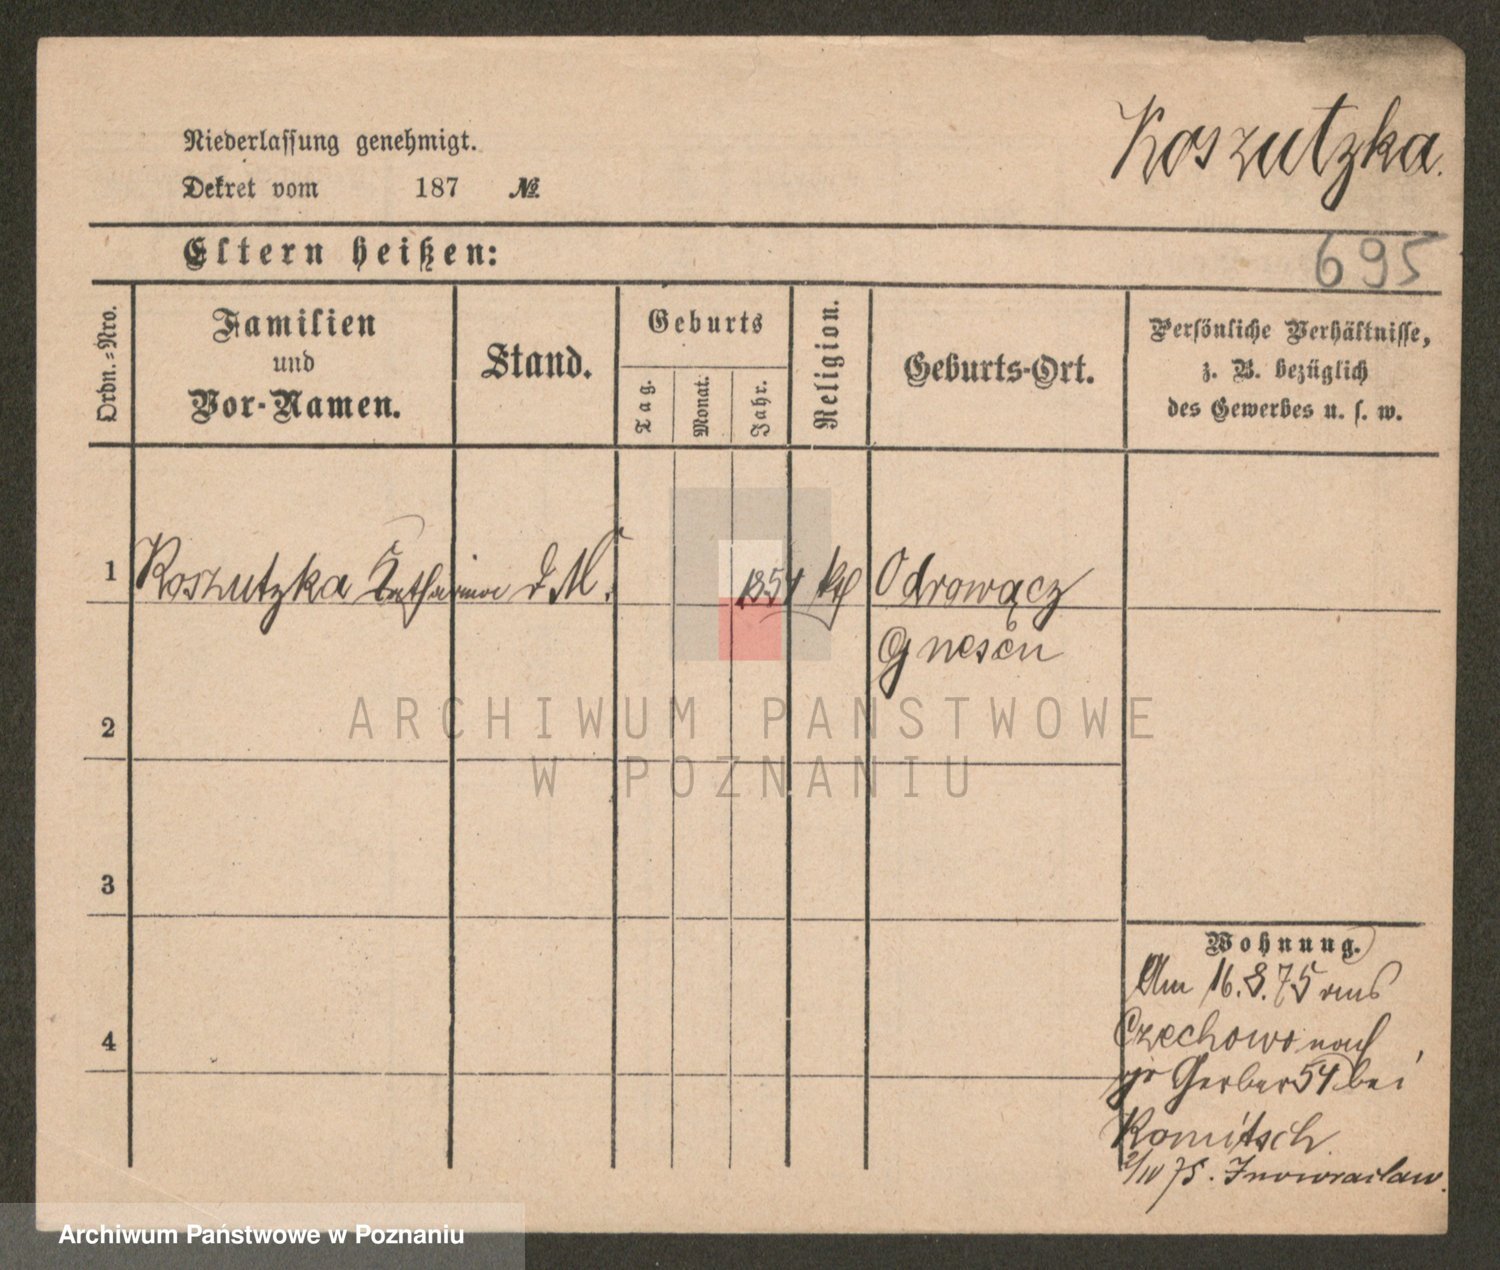 Koszutzka.
Niederlassung genehmigt.
Dekret vom 187 №
Eltern heißen:
695
Ordn.-Nro.
Familien
und
Vor-Namen.
Stand.
Geburts
Tag.
Monat.
Jahr.
Religion.
Geburts-Ort.
Persönliche Verhältnisse,
z. B. bezüglich
des Gewerbes u. s. w.
1 Koszutzka Catharina D M. 1854 kh Odrowącz
Gnesen
2
3
4
Wohnung.
Am 16.8.75 aus
Czechowo nach
gr Gerber 54 bei
Komitsch
2/IV 75. Inowraclaw.
ARCHIWUM PAŃSTWOWE
W POZNANIU
Archiwum Państwowe w Poznaniu